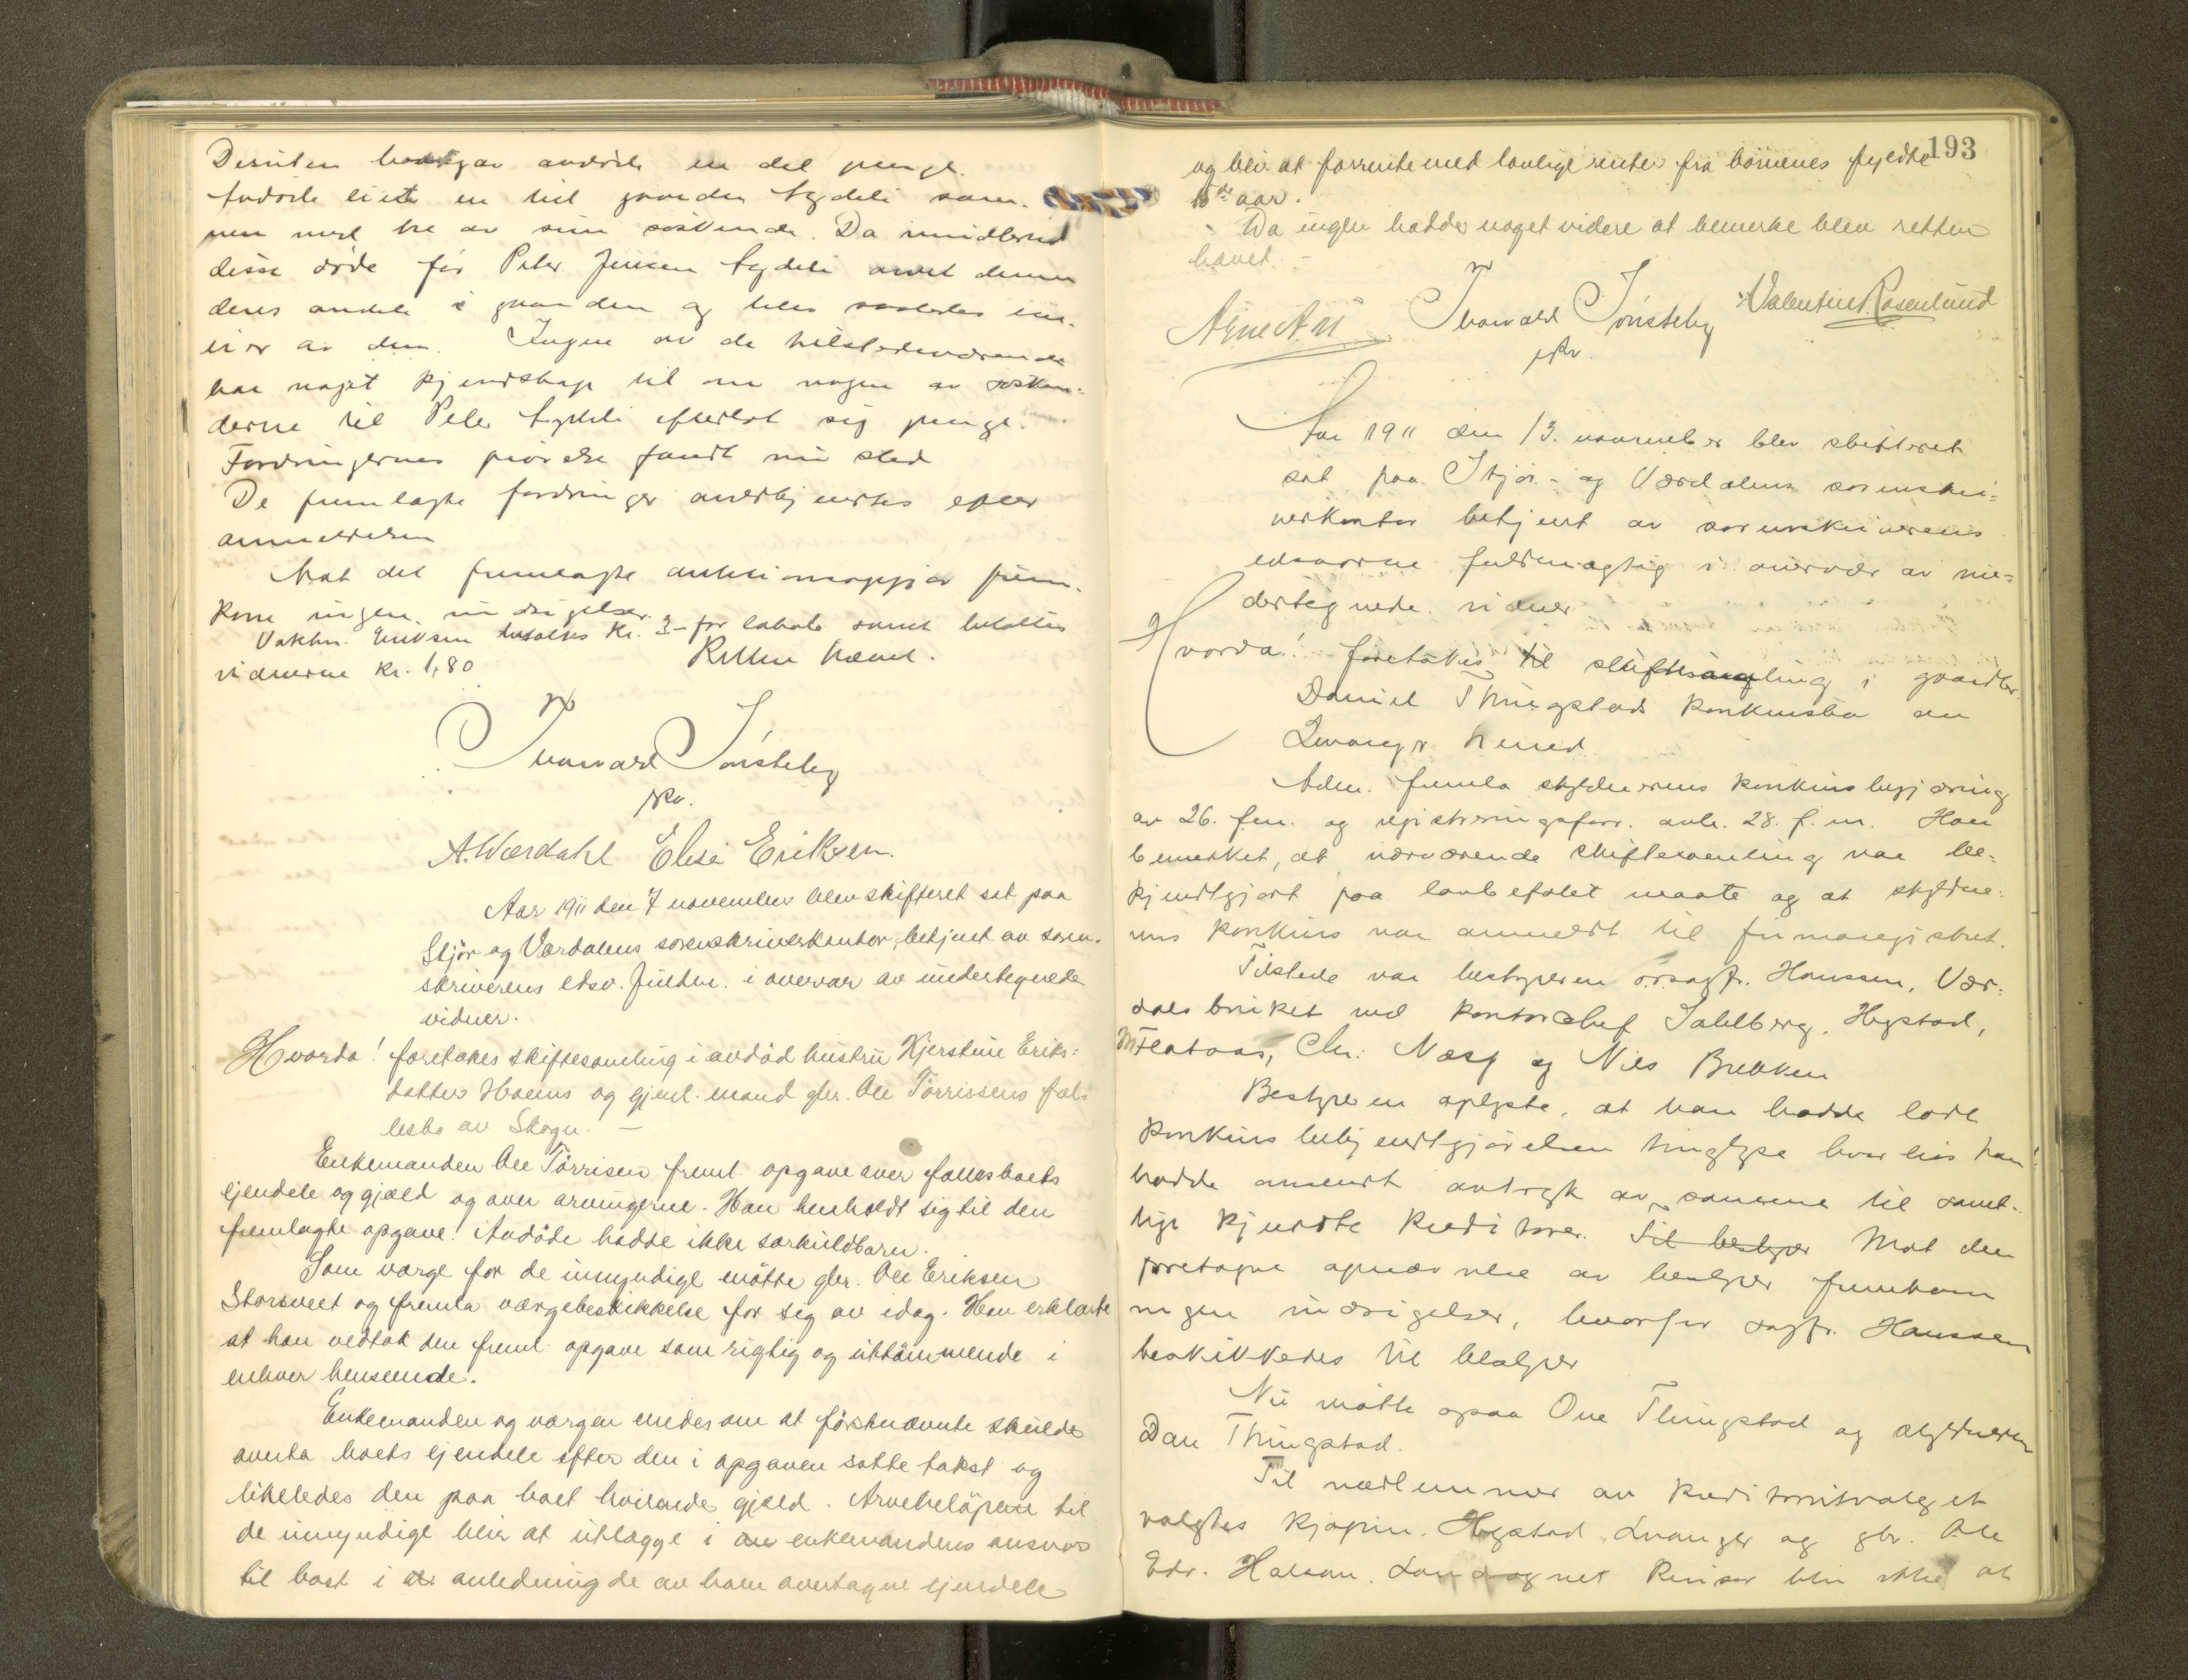 Desuten har avdöde en del penge.
Avdöde eiet en tid gaarden Lydeli sam-
men med tre av sine söskende. Da imidlertid
disse döde för Peter Jensen Lydeli arvet denne
deres andele i gaarden og blev saaledes ene-
eier av den. Ingen av de tilstedeværende
har noget kjendskap til om nogen av sösken-
derne til Peter Lydeli efterlot sig penge.
Fordringernes prövelse fandt nu sted
De fremlagte fordringer anerkjendtes efter
anmeldelsen
Mot det fremlagte auktionsopgjör frem-
kom ingen indsigelser.
Vaktm. Eriksen betaltes kr. 3- for lokale samt betaltes
vidnerne kr. 1,80 Retten hævet.
Thorvald Tönseby
fkv.
A. Wærdahl Elise Eriksen.
Aar 1911 den 7 november blev skifteret sat paa
Stjör og Værdalens sorenskriverkontor, betjent av soren-
skriverens edsv. fuldm. i overvær av undertegnede
vidner.
Hvorda! foretokes skiftesamling i avdöd hustru Kjerstine Eriks-
datter Hoems og gjenl. mand gbr. Ole Törrissens fæl-
lesbo av Skogn. —
Enkemanden Ole Törrisen freml. opgave over fællesboets
ejendele og gjæld og over arvingerne. Han henholdt sig til den
fremlagte opgave! Avdöde hadde ikke særkuldbarn.
Som værge for de umyndige mötte gbr. Ole Eriksen
Storsveet og fremla værgebeskikkelse for sig av idag. Han erklærte
at han vedtok den freml. opgave som rigtig og uttömmende i
enhver henseende.
Enkemanden og værgen enedes om at förstnævnte skulde
overta boets ejendele efter den i opgaven satte takst og
likeledes den paa boet hvilende gjæld. Arvebelöpene til
de umyndige blir at utlægge i enkemandens ansvar
til bost i anledning de av ham overtagne ejendele
193
og blir at forrente med lovlige renter fra börnenes fyldte
15de aar.
Da ingen hadde noget videre at bemerke blev retten
hævet. -
Arne A. Thorvald Tönseby Valentin Rosenlund
fkv.
Aar 1911 den 13. november blev skifteret
sat paa Stjör- og Værdalens sorenskri-
verkontor betjent av sorenskriverens
edsvorne fuldmægtig i overvær av un-
dertegnede vidner
Hvorda! foretokes til skiftesamling i gaardbr.
Daniel Thingstads konkursbo av
Levanger herred.
Adm. fremla skyldnerens konkursbegjæring
av 26. f.m. og registreringsforr. avh. 28. f.m. Han
bemerket, at nærværende skiftesamling var be-
kjendtgjort paa lovbefalet maate og at skyldne-
rens konkurs var anmeldt til firmaregistret.
Tilstede var bestyreren o.r.sagf. Hanssen, Vær-
dalsbruket ved kontorchef Sahlberg, Hegstad,
Chr. Næss og Nils Brekken
Bestyreren oplyste, at han hadde latt
konkursbekjendtgjörelsen tinglyse hvorhos han
hadde omsendt avtryk av samme til samt-
lige kjendte kreditorer. Til bestyrer Mot den
foretagne opnævnelse av bestyrer fremkom
ingen indsigelser, hvorfor sagf. Hanssen
beskikkedes til bestyrer
Nu mötte ogsaa Ove Thingstad og skyldneren
Dan Thingstad.
Til medlemmer av kreditorutvalget
valgtes kjöpm. Hegstad, Levanger og gbr. Ole
Edv. Halsan. Revisor blir ikke at